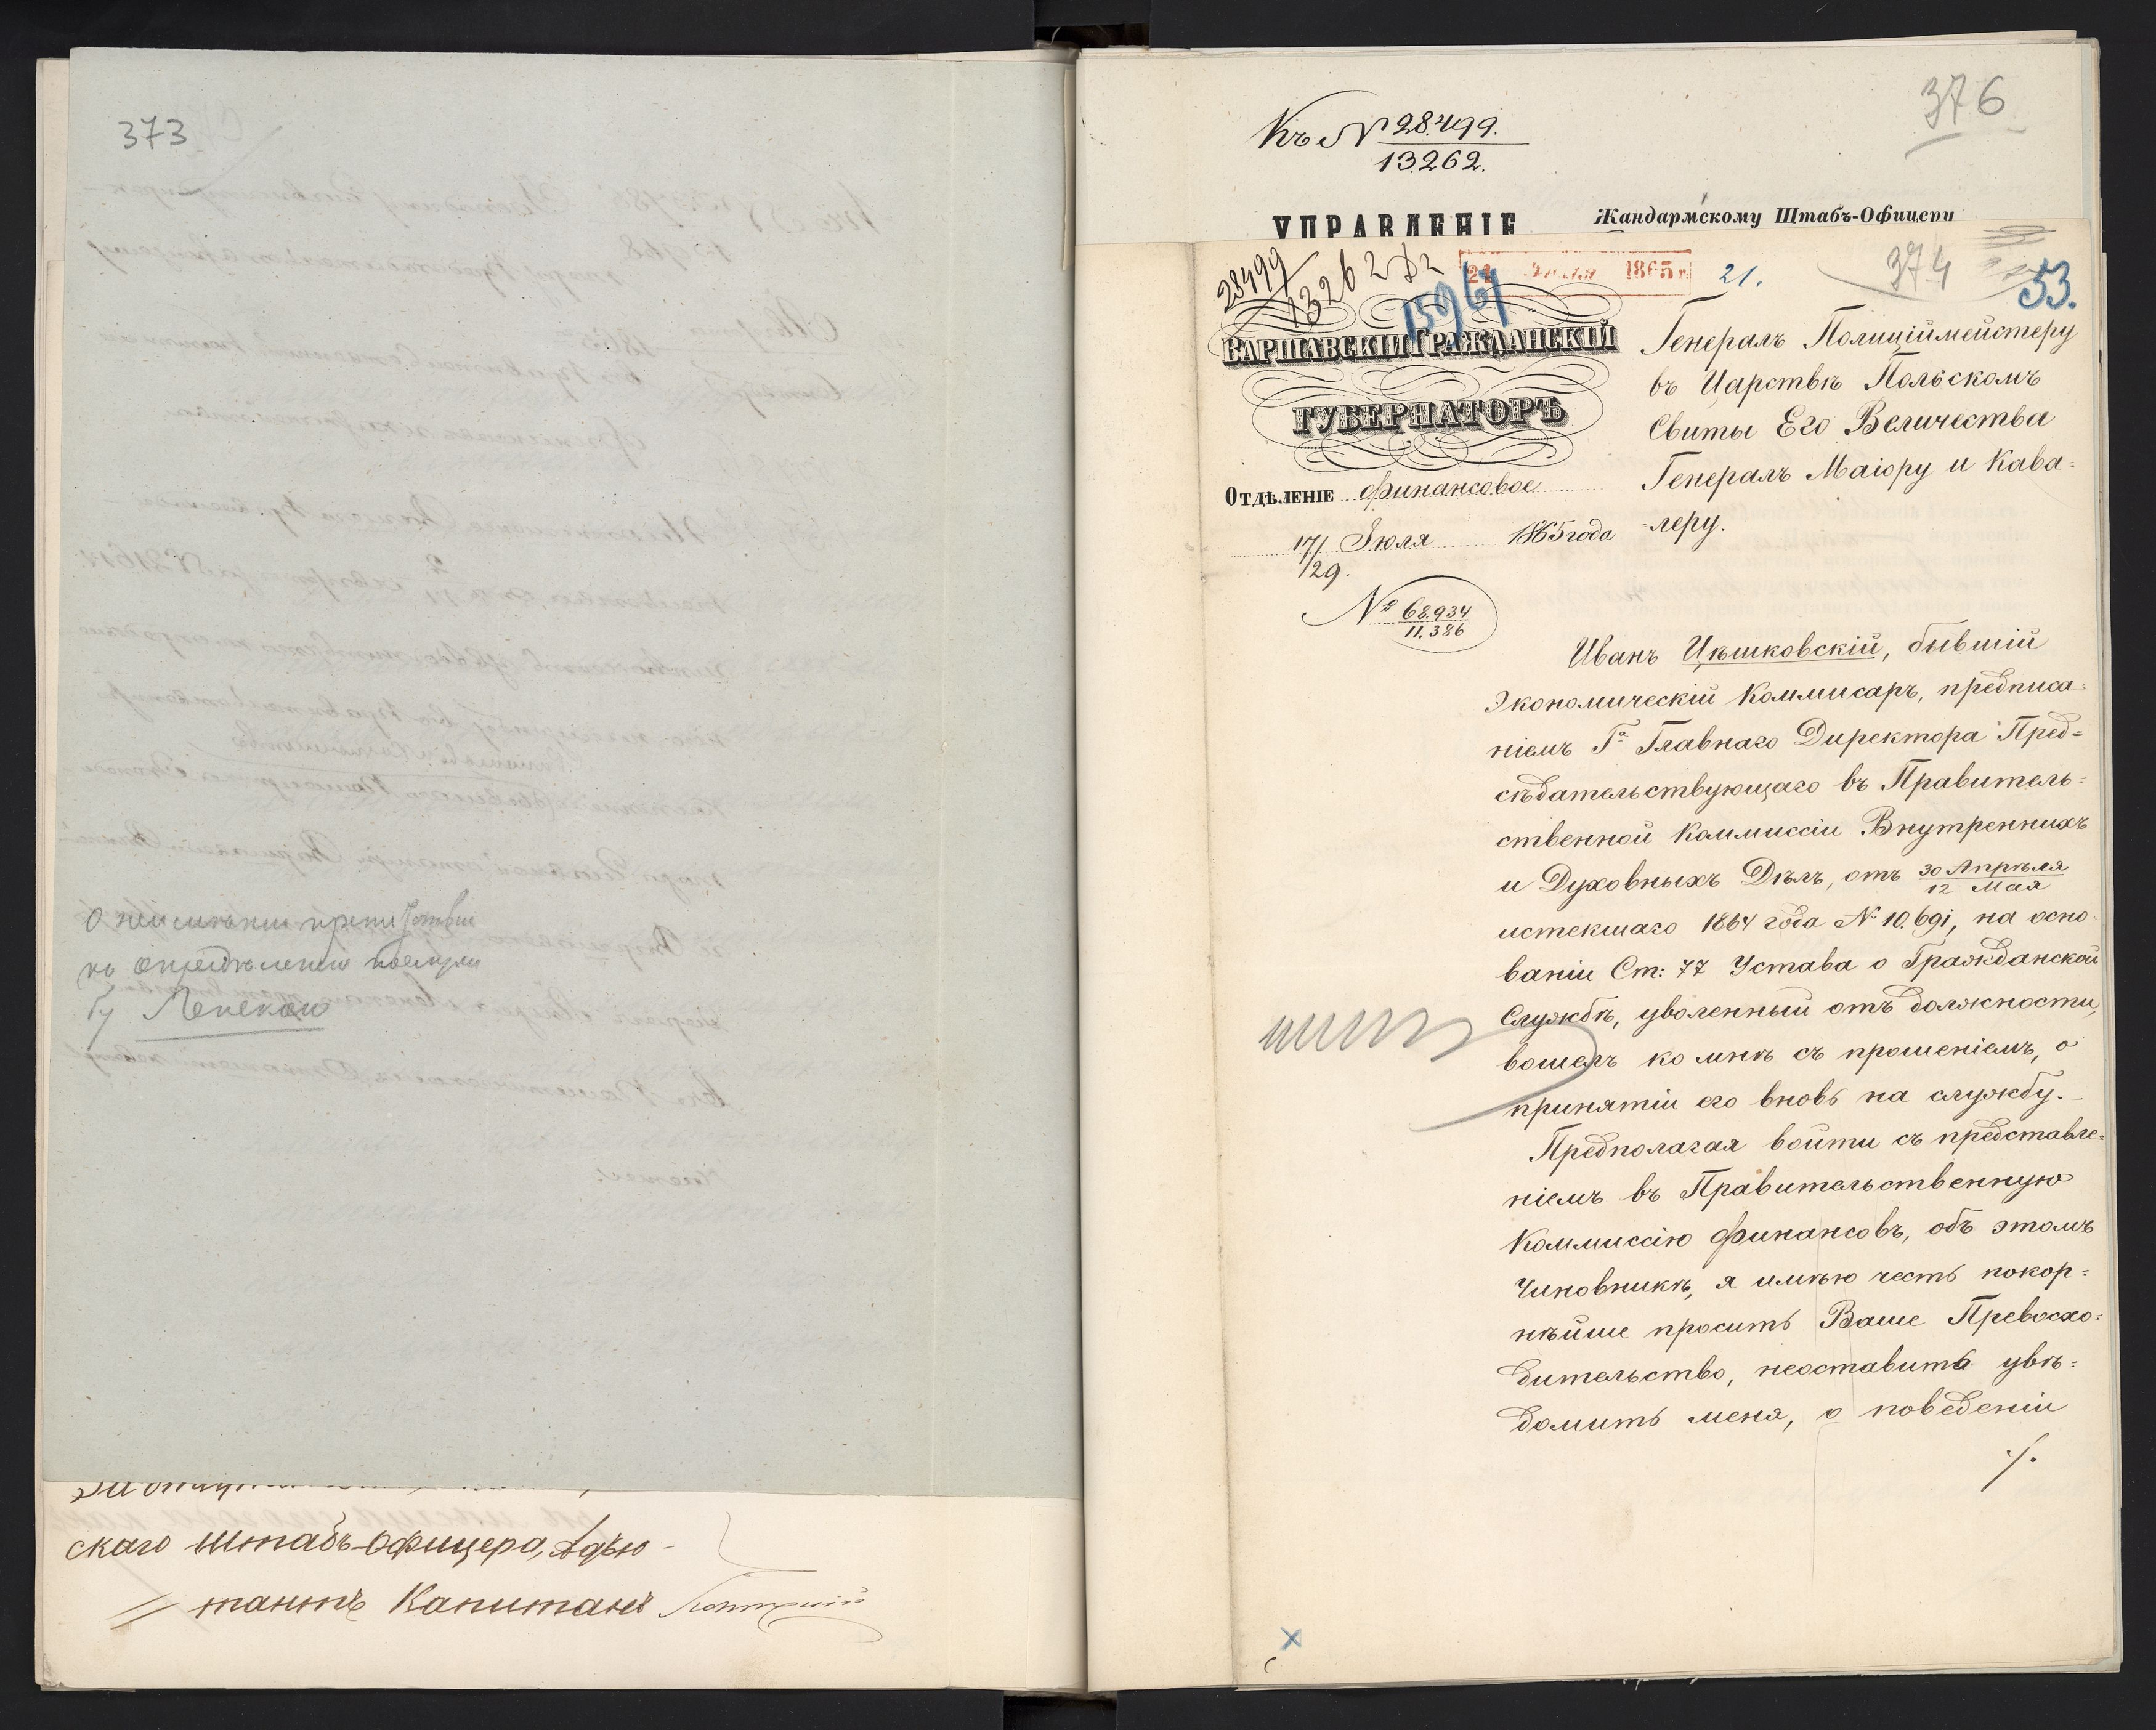 373
О неимѣнии препятствия
къ опредѣлению
скаго Штабъ-Офицера, Адъю-
тантъ Капитанъ
376
Къ № 28.499.
13.262.
УПРАВЛЕНІЕ
Жандармскому Штабъ-Офицеру
28499
13262
21 Іюля 1865 г.
21.
374
53.
15961
ВАРШАВСКІЙ ГРАЖДАНСКІЙ
ГУБЕРНАТОРЪ
Отдѣленіе Финансовое
17/29. Іюля 1865 года
№ 68.934
11.386
Генералъ Полиціймейстеру
въ Царствѣ Польскомъ
Свиты Его Величества
Генералъ Маіору и Кава=
=леру.
Иванъ Цѣшковскій, бывшій
Экономическій Коммисаръ, предписа=
ніемъ Гᵃ Главнаго Директора Пред=
сѣдательствующаго въ Правитель=
ственной Коммиссіи Внутреннихъ
и Духовныхъ Дѣлъ, отъ 30 Апрѣля
12 Мая
истекшаго 1864 года № 10.691, на осно
ваніи Ст: 77 Устава о Гражданской
Службѣ, уволенный отъ должности,
вошелъ ко мнѣ съ прошеніемъ, о
принятіи его вновь на службу.
Предполагая войти съ представле=
ніемъ въ Правительственную
Коммиссію Финансовъ, объ этомъ
Чиновникѣ, я имѣю честь покор=
нѣйше просить Ваше Превосхо=
дительство, неоставить увѣ=
домить меня, о поведеніи
./.